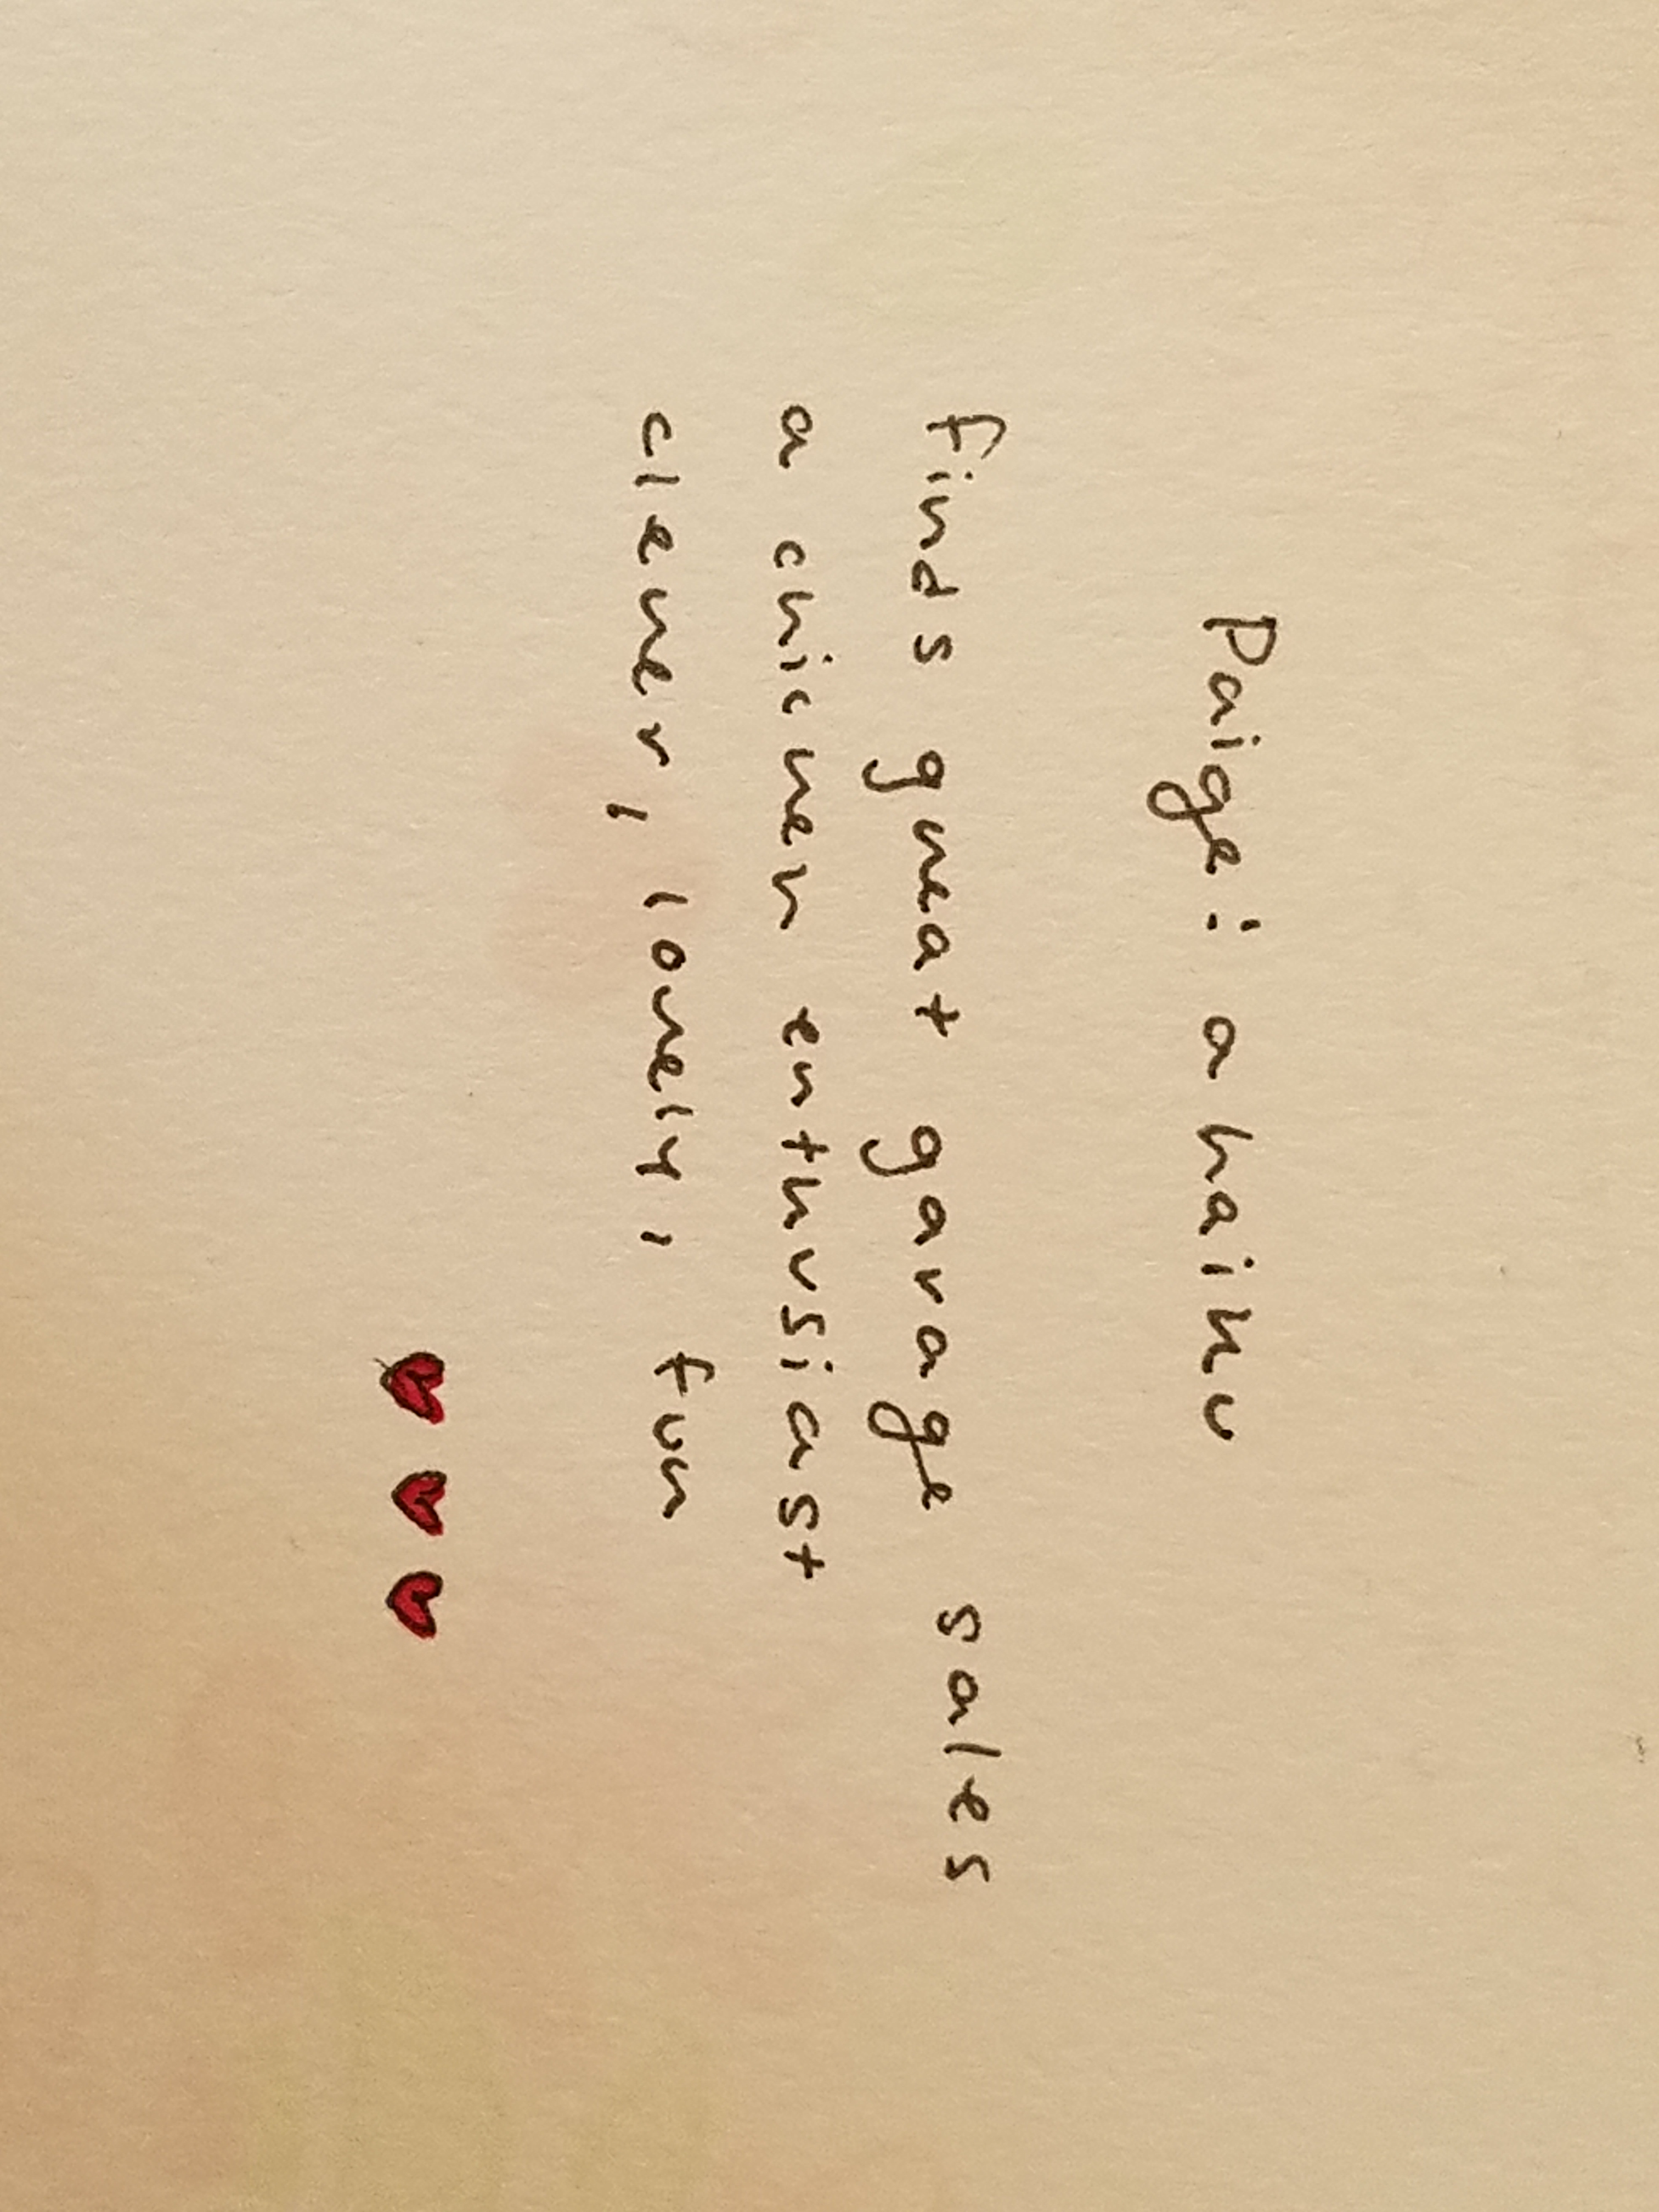 Paige: a haiku
finds great garage sales
a chicken enthusiast
clever, lovely, fun